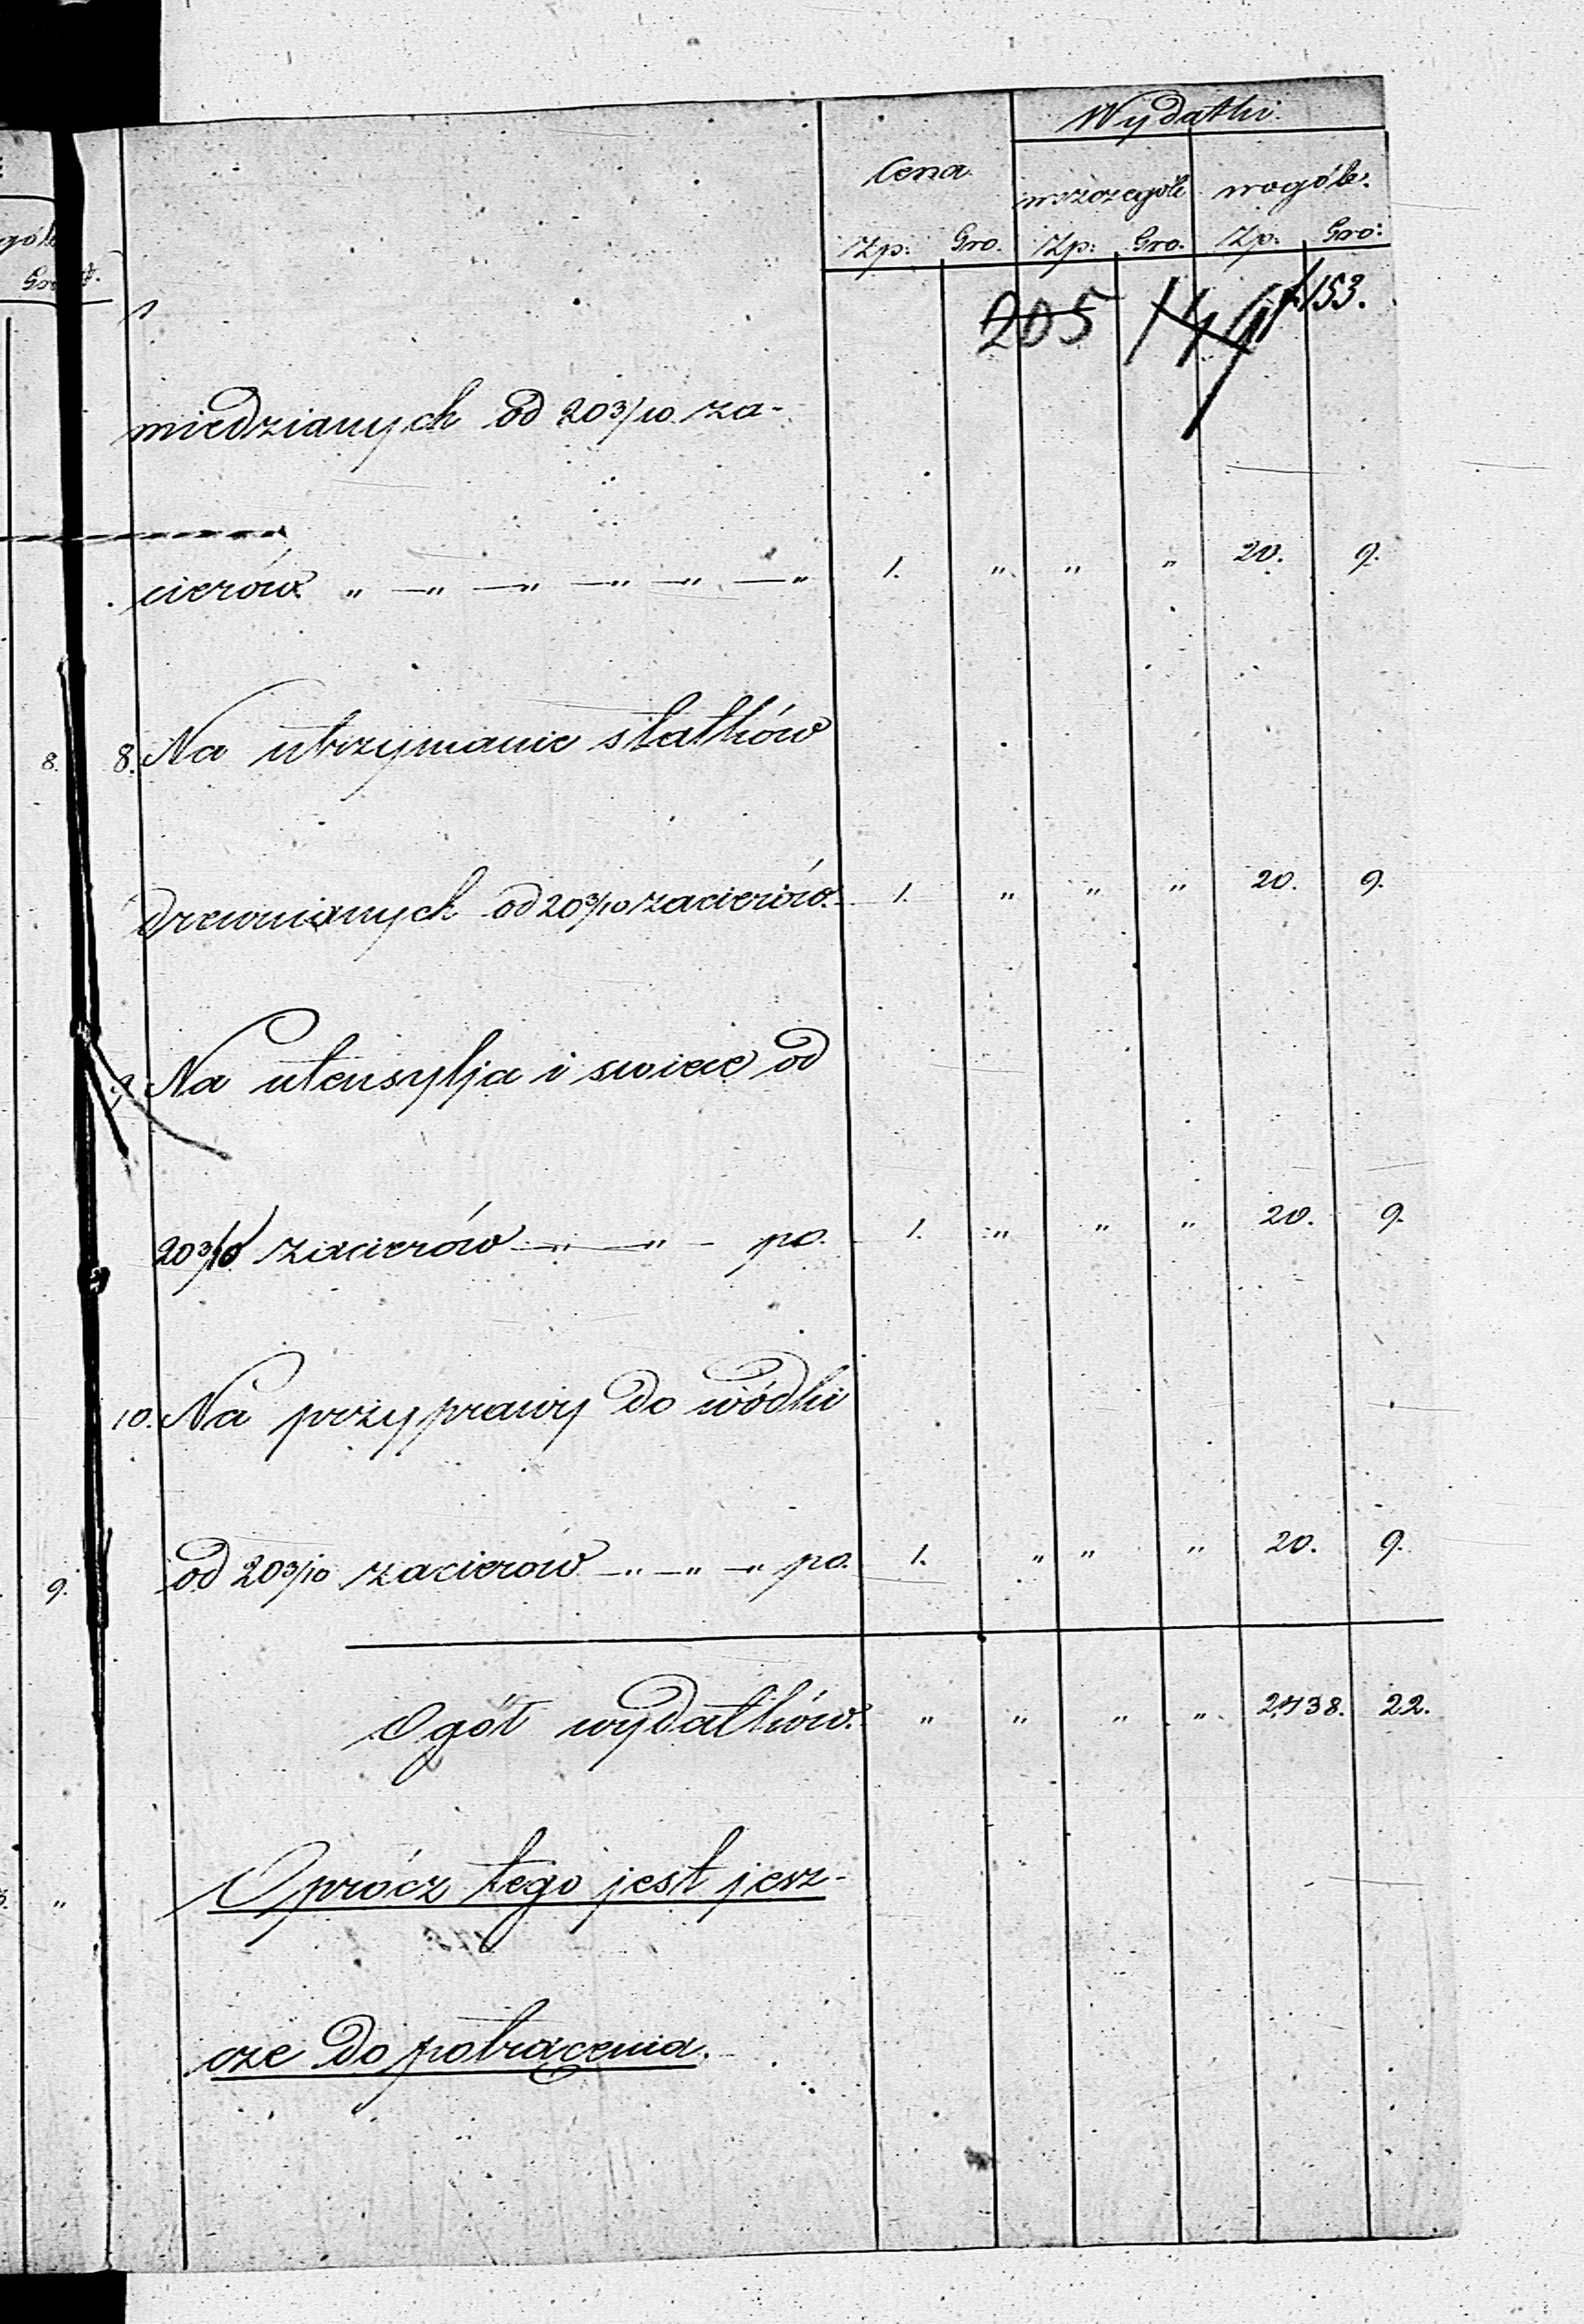 Wydatki.
Cena. wszczególe wogóle.
Złp: Gro. Złp: Gro. Złp. Gro:
205 f. 153.
miedzianych od 20 3/10 za-
cierów „ —„ —„ —„ —„ —„ 1. „ „ „ 20. 9.
8. Na utrzymanie statków
drewnianych od 20 3/10 zacierów. 1. „ „ „ 20. 9.
9. Na utensylja i swiece od
20 3/10 zacierów —„ —„ — po. 1. „ „ „ 20. 9.
10. Na przyprawy do wódki
od 20 3/10 zacierów —„ —„ —„ po. 1. „ „ „ 20. 9.
Ogół wydatków. „ „ „ „ 2,738. 22.
Oprócz tego jest jesz-
cze do potrącenia.
góle
Gro.
8.
9.
„